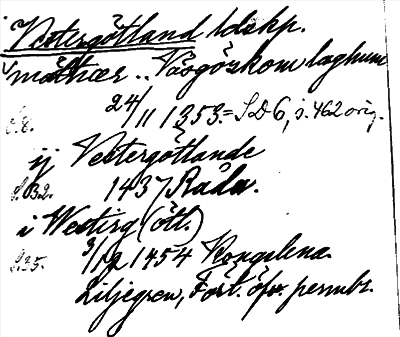 Vestergötland ldskp.
mädhær .. Væsgözkom laghum
24/11 1353. = SD 6, s. 462 orig.
ij Vestergötlande
1437 Råda.
i Westerg(ötl.)
3/12 1454 Kongalena.
Liljegren, Fört. öfv. permbr.